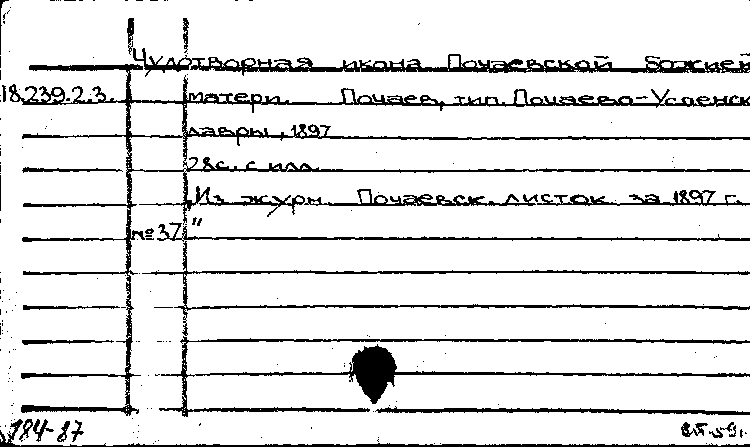 Чудотворная икона Почаевской Божией
18.239.2.3. матери. Почаев, тип. Почаево-Успенск
лавры, 1897
28с. с илл.
"Из журн. Почаевск. листок за 1897 г.
№37"
184-87